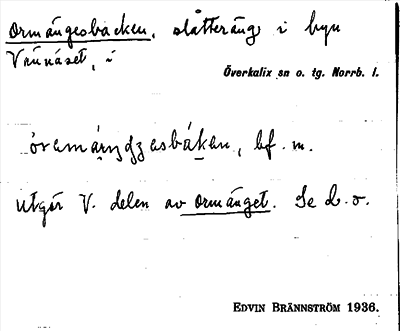 Ormängesbacken, slåtteräng i byn
Vännäset, i
Överkalix sn o. tg. Norrb. l.
bf. m.
utgör V. delen av Ormänget. Se d. o.
EDVIN BRÄNNSTRÖM 1936.